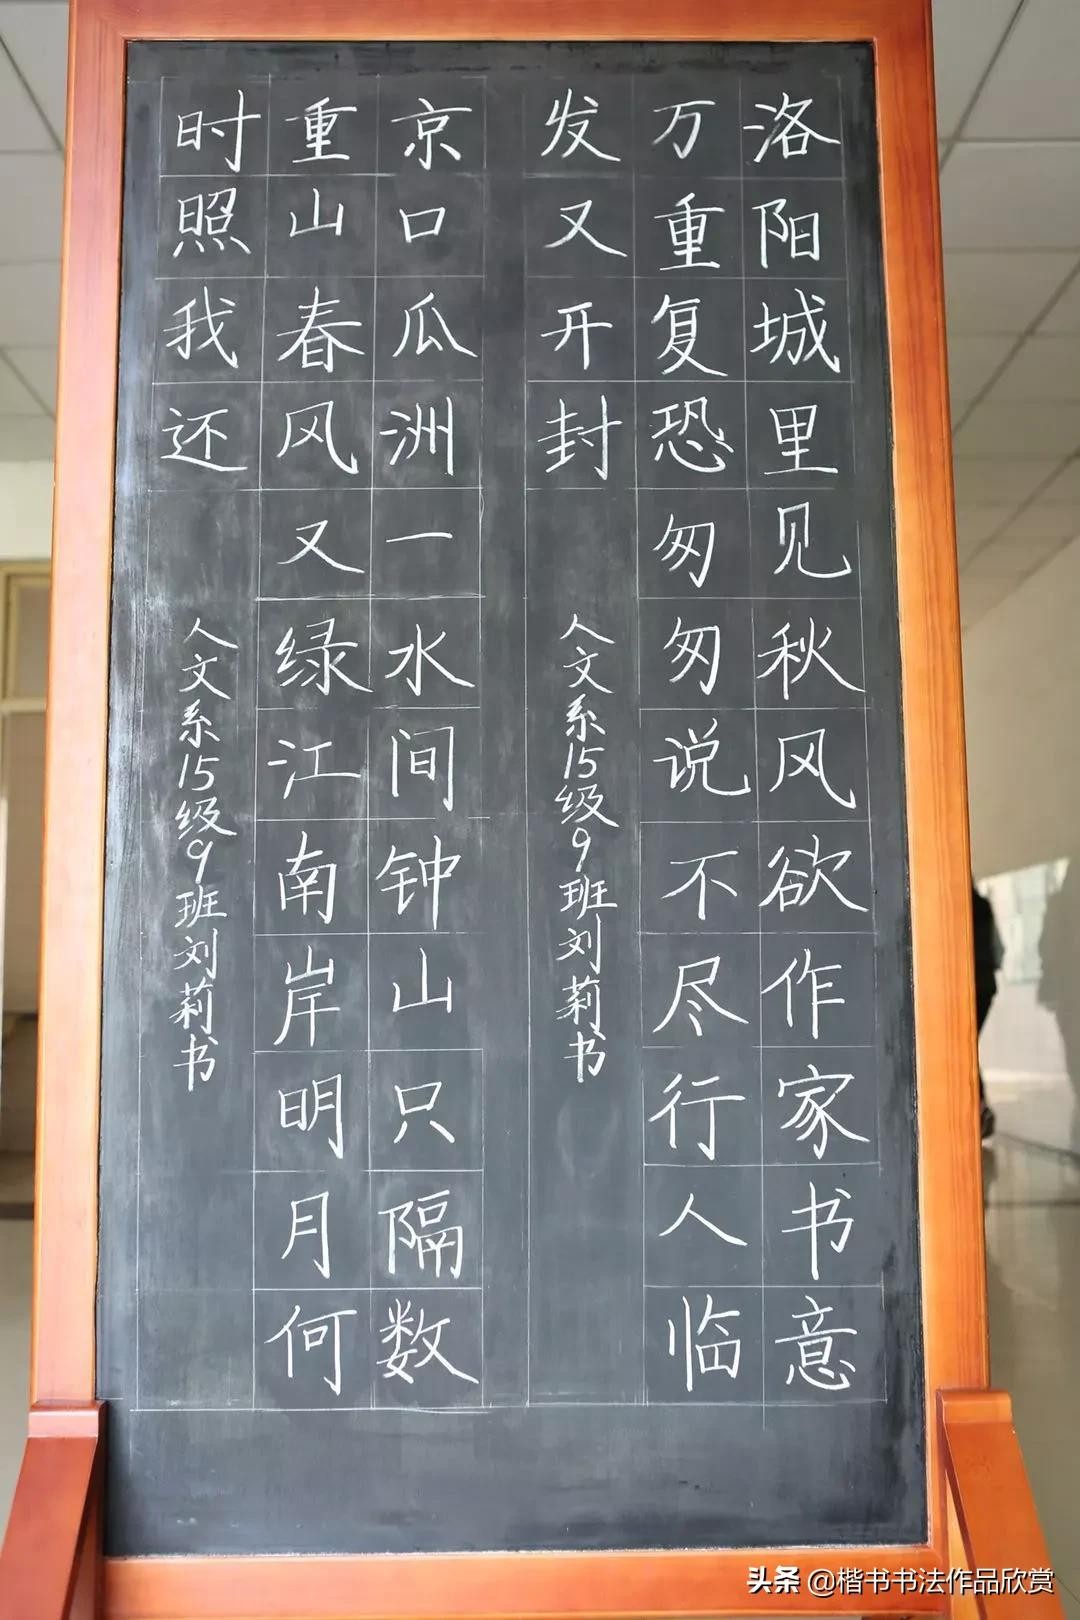 洛阳城里见秋风欲作家书意
万重复恐匆匆说不尽行人临
发又开封
人文系15级9班刘莉书
京口瓜洲一水间钟山只隔数
重山春风又绿江南岸明月何
时照我还
人文系15级9班刘莉书
头条 @楷书书法作品欣赏